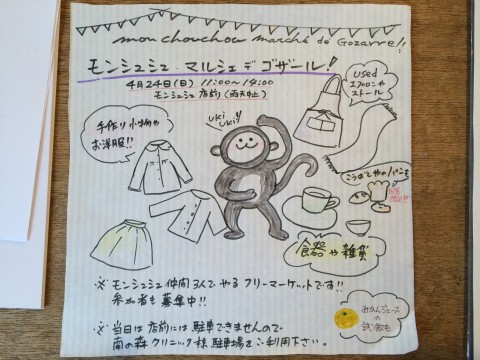 mon chouchou marché de Gozarre!!
モンシュシュ・マルシェ デ ゴザール!
4月24日(日) 11:00〜14:00
モンシュシュ 店前 (雨天中止)
used
エプロンや
ストール
手作り小物や
お洋服!!
uki
uki!!
こうばやのパンも
食器や雑貨
※ モンシュシュ仲間3人でやるフリーマーケットです!!
参加者も募集中!!
※ 当日は店前には駐車できませんので
南の森クリニック様駐車場をご利用下さい。
みかんジュース
の
試飲も